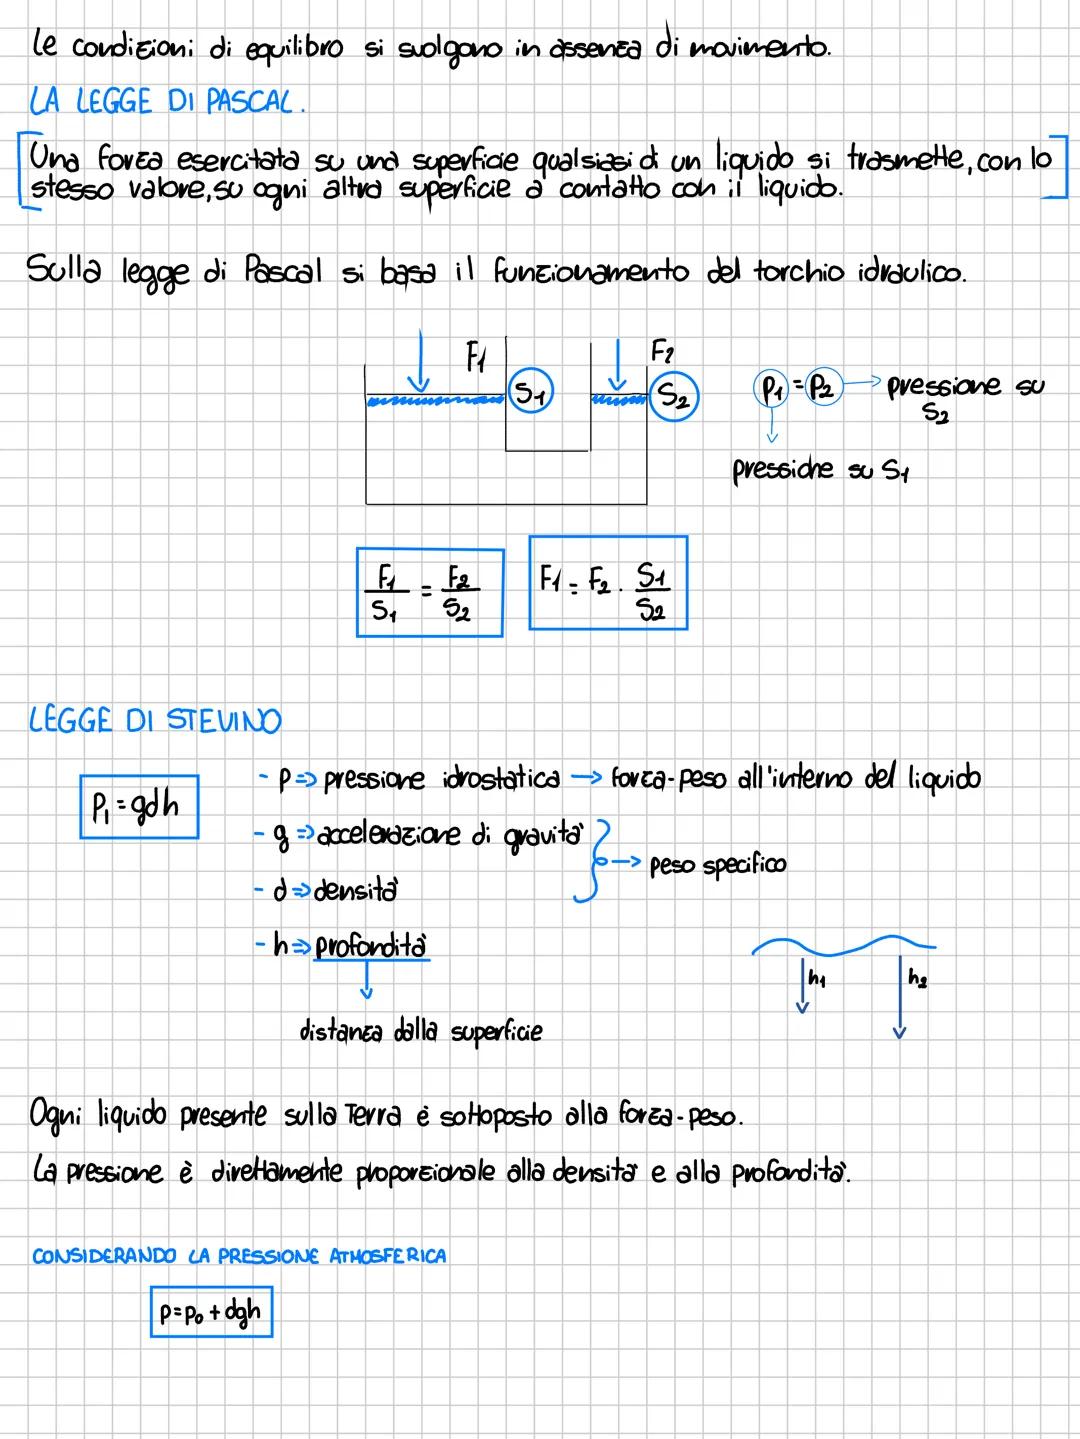 Le condizioni di equilibro si svolgono in assenza di movimento.
LA LEGGE DI PASCAL.
Una forza esercitata su una superficie qualsiasi di un liquido si trasmette, con lo
stesso valore, su ogni altra superficie a contatto con il liquido.
Sulla legge di Pascal si basa il funzionamento del torchio idraulico.
F1 F2
S1 S2 P1 = P2 → pressione su
S2
pressione su S1
F1/S1 = F2/S2 F1 = F2 · S1/S2
LEGGE DI STEVINO
P1 = gdh
- P ⇒ pressione idrostatica → forza-peso all'interno del liquido
- g ⇒ accelerazione di gravità
→ peso specifico
- d ⇒ densità
- h ⇒ profondità
h1 h2
distanza dalla superficie
Ogni liquido presente sulla Terra è sottoposto alla forza-peso.
La pressione è direttamente proporzionale alla densità e alla profondità.
CONSIDERANDO LA PRESSIONE ATMOSFERICA
p = p0 + dgh